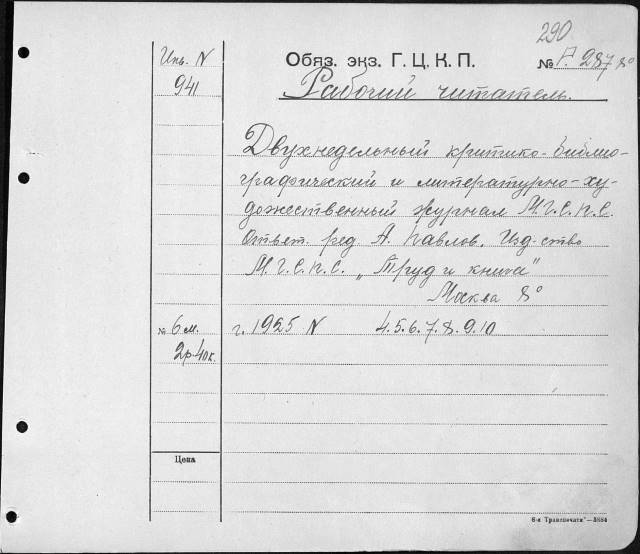 290
Инв. N
941
Обяз. экз. Г. Ц. К. П.
№ Р. 287 8º
Рабочий читатель.
Двухнедельный критико-библио-
графический и литературно-ху-
дожественный журнал М.Г.С.П.С.
Ответ. ред. А. Павлов. Изд-ство
М.Г.С.П.С. „Труд и книга"
Москва 8º
№ 6 м. г. 1925 N 4.5.6.7.8.9.10
2р.40к.
Цена
6-я Транспечати"—3884